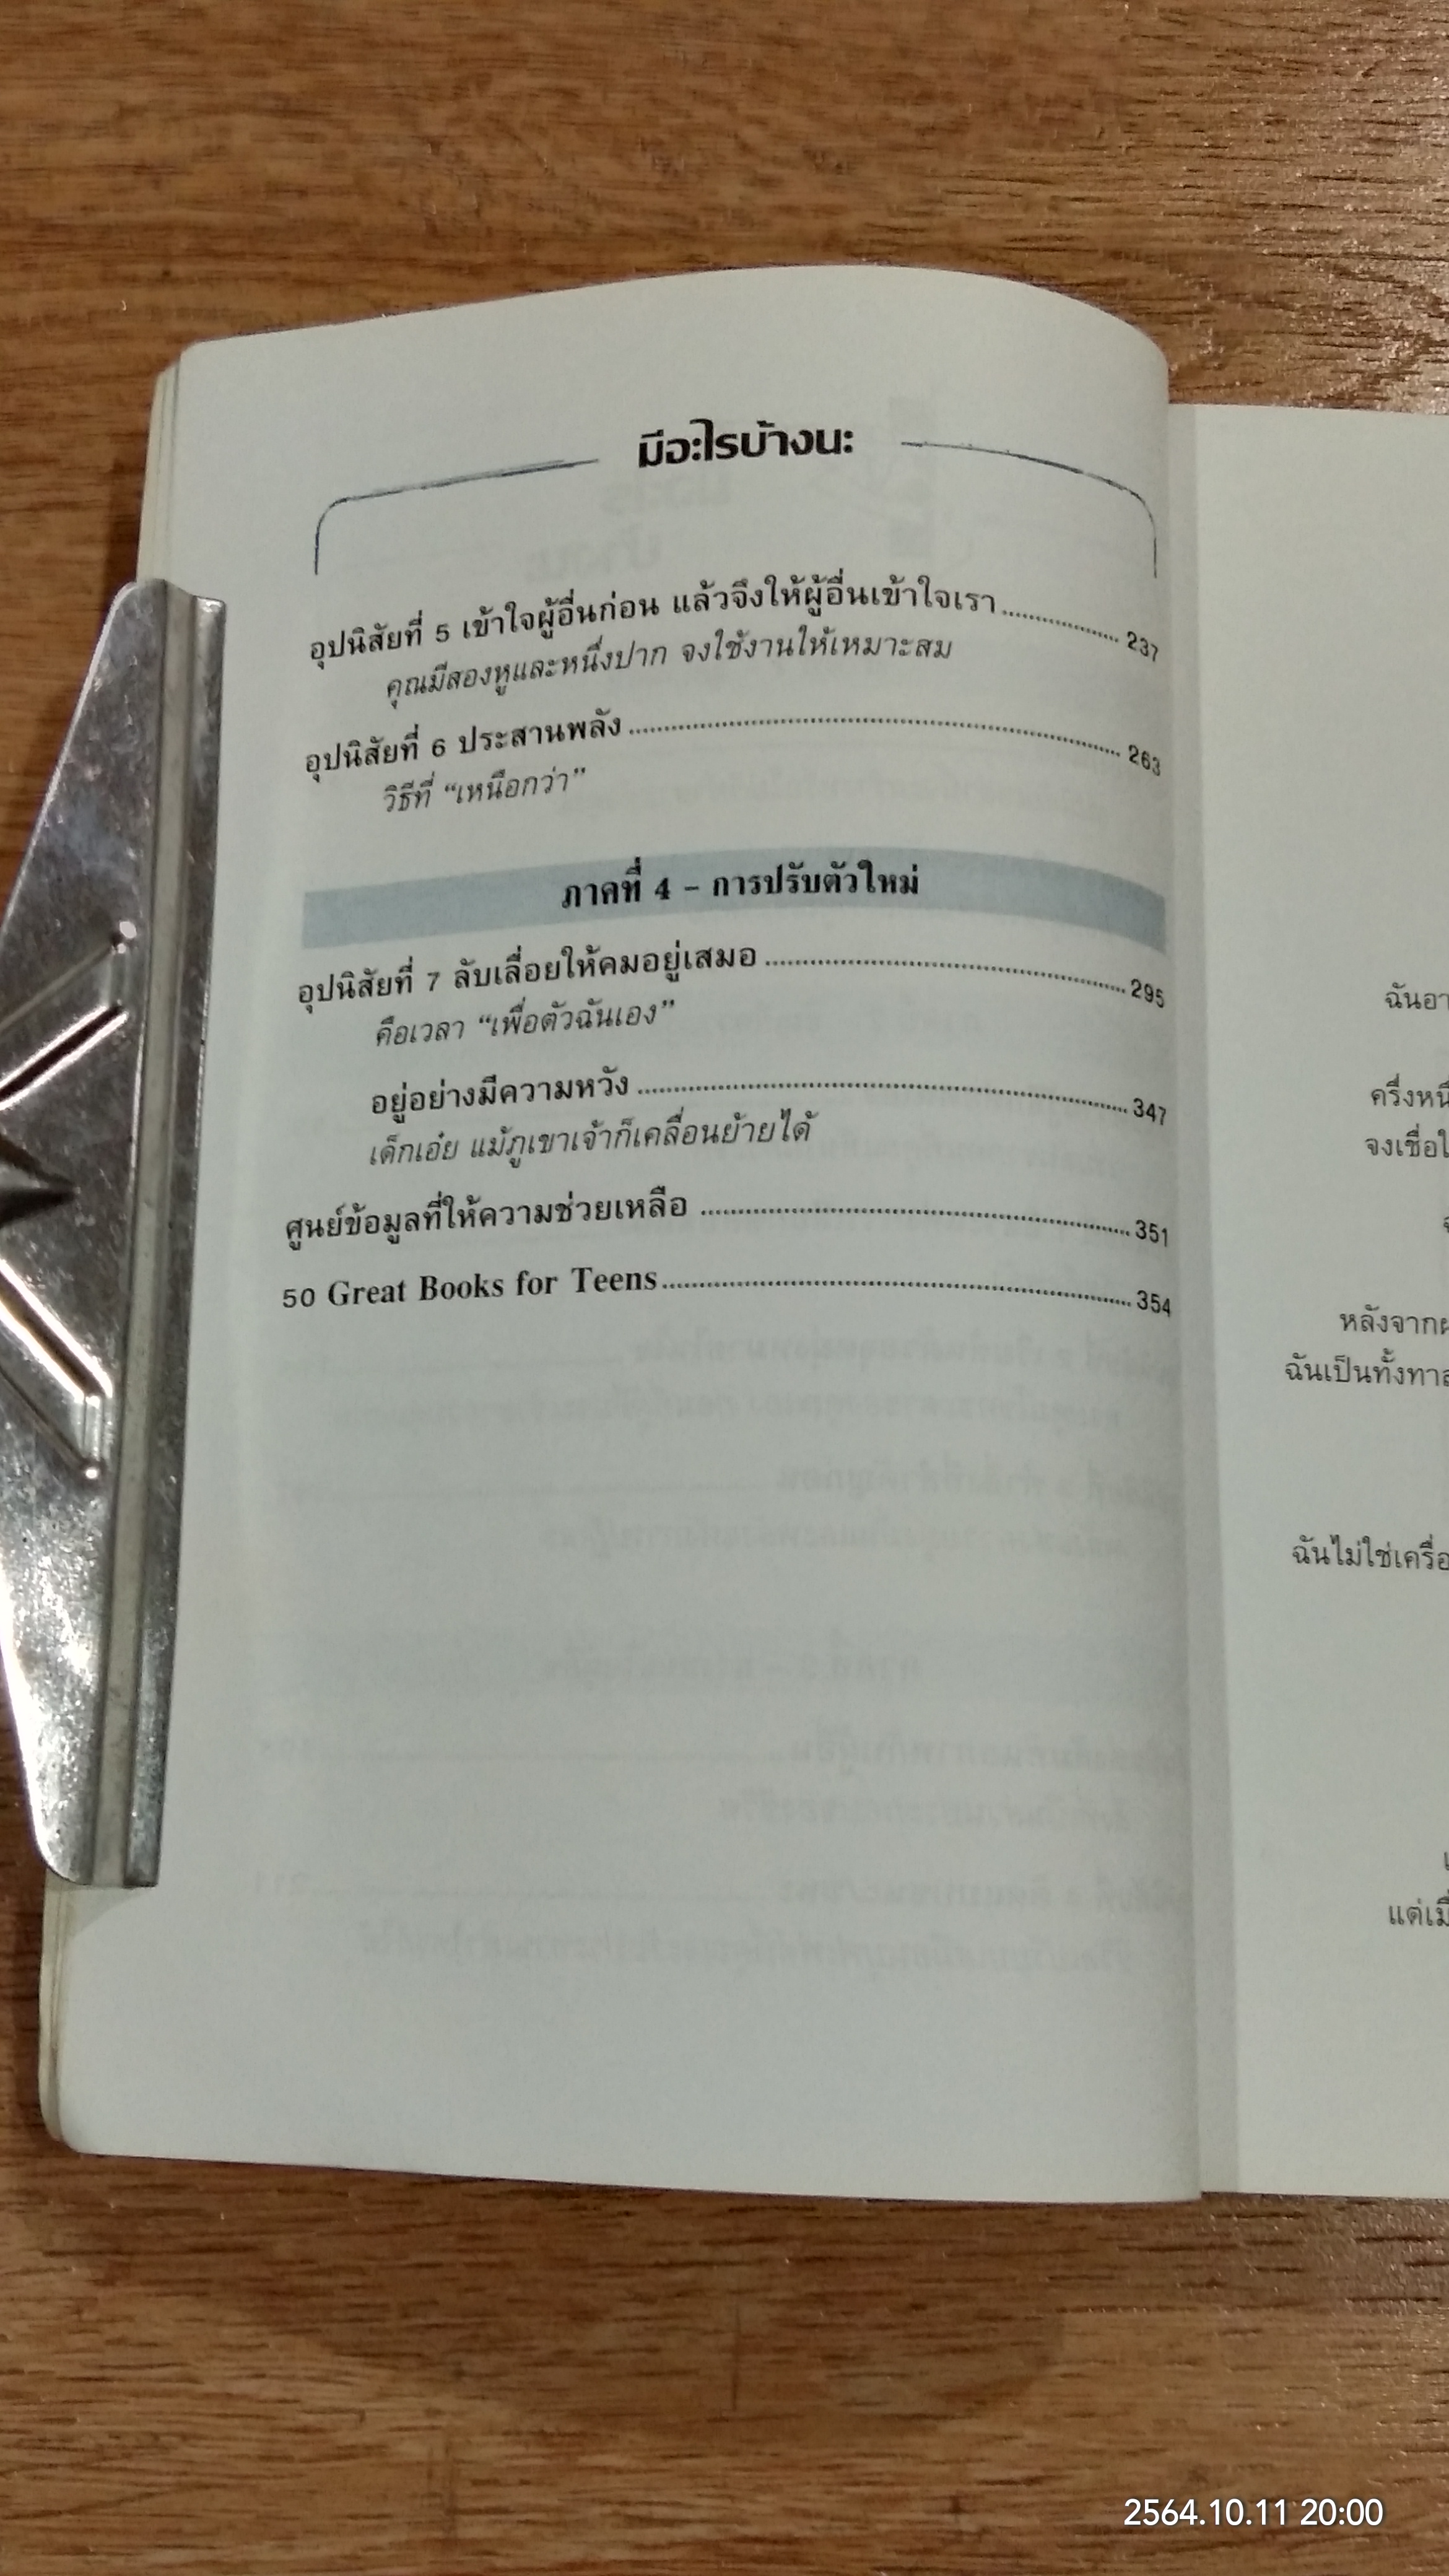 มีอะไรบ้างนะ
อุปนิสัยที่ 5 เข้าใจผู้อื่นก่อน แล้วจึงให้ผู้อื่นเข้าใจเรา 237
คุณมีสองหูและหนึ่งปาก จงใช้งานให้เหมาะสม
อุปนิสัยที่ 6 ประสานพลัง 263
วิธีที่ “เหนือกว่า”
ภาคที่ 4 – การปรับตัวใหม่
อุปนิสัยที่ 7 ลับเลื่อยให้คมอยู่เสมอ 295
คือเวลา “เพื่อตัวฉันเอง”
อยู่อย่างมีความหวัง 347
เด็กเอ๋ย แม้ภูเขาเจ้าก็เคลื่อนย้ายได้
ศูนย์ข้อมูลที่ให้ความช่วยเหลือ 351
50 Great Books for Teens 354
ฉันอา
ครึ่งหนึ
จงเชื่อใ
หลังจาก
ฉันเป็นทั้งทา
ฉันไม่ใช่เครื่อ
แต่เมื่
2564.10.11 20:00